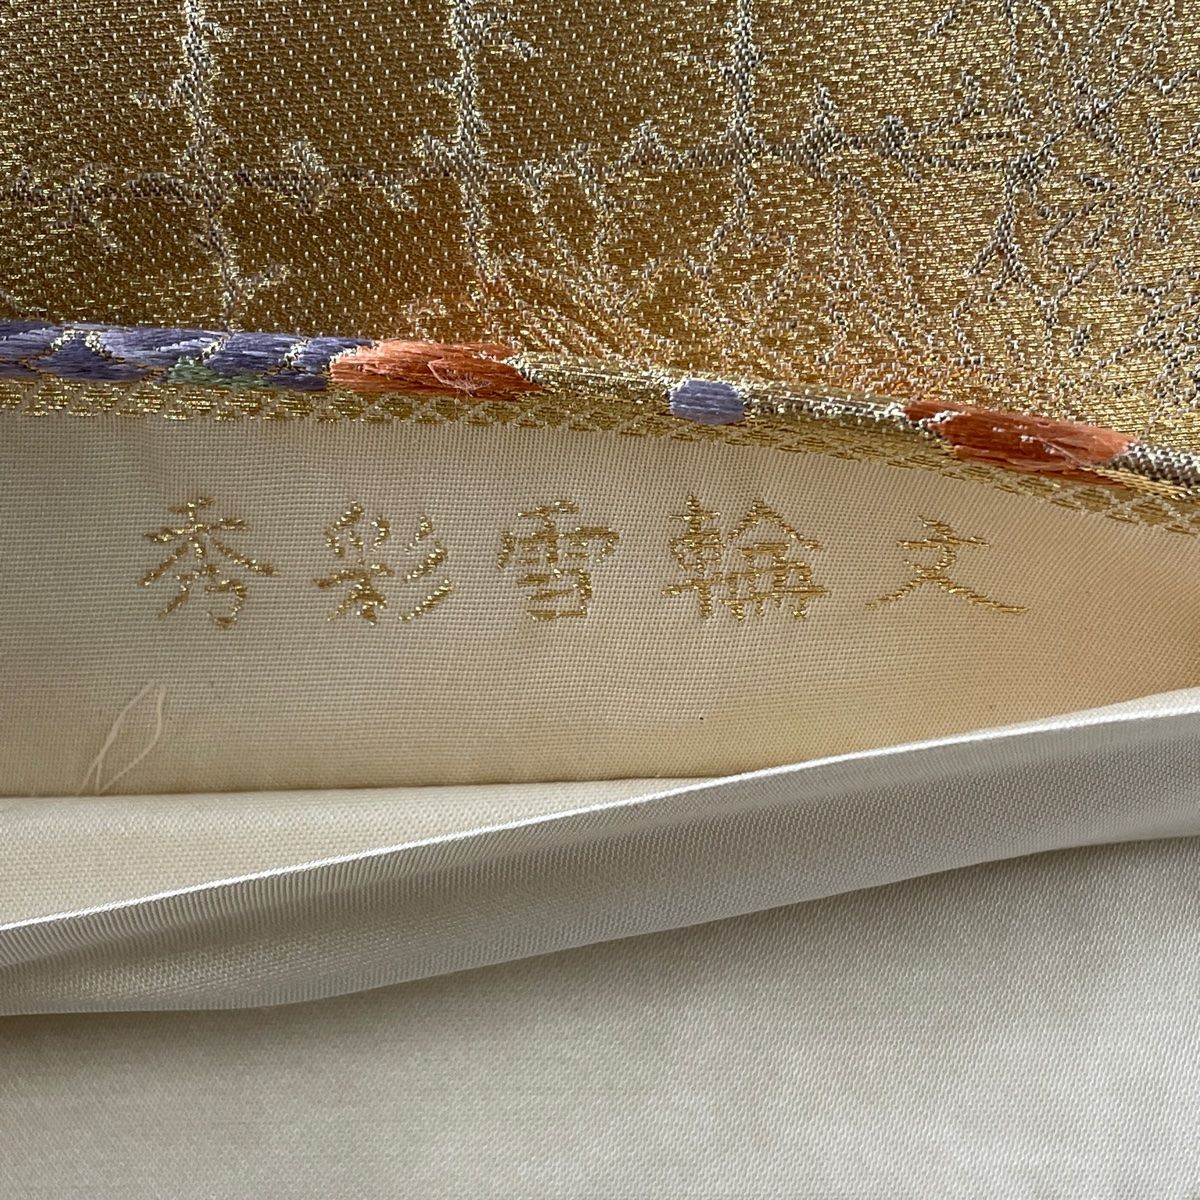 秀彩雪輪文